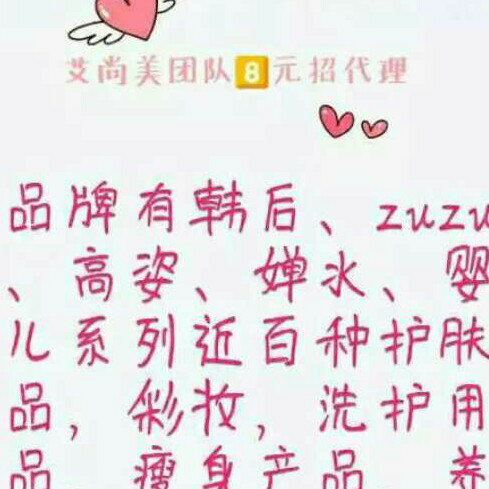 艾尚美团队8元招代理
品牌有韩后、zuzu
、高姿、婵水、婴
儿系列近百种护肤
品，彩妆，洗护用
品，瘦身产品，养